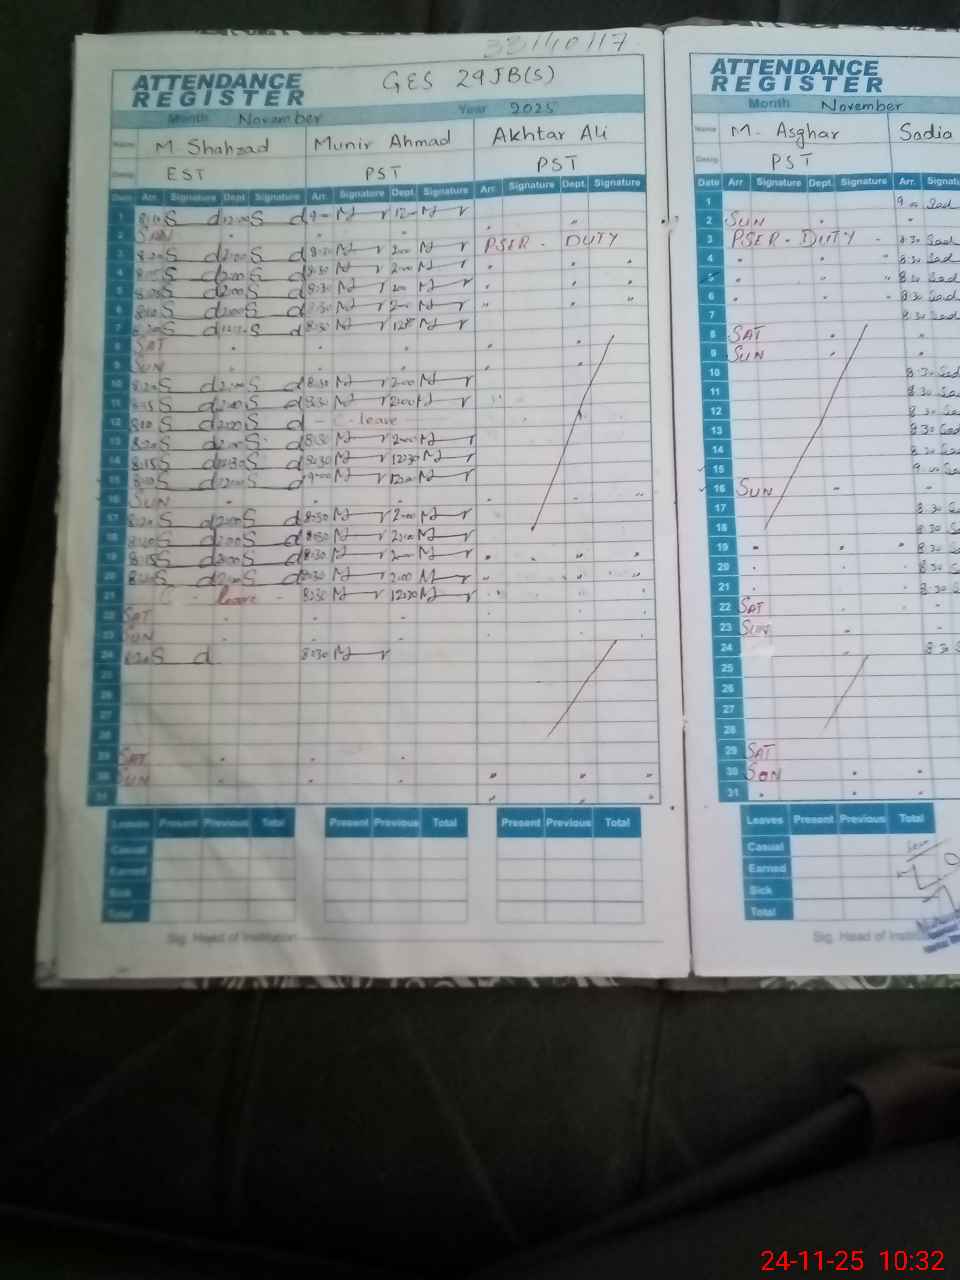 33140117
ATTENDANCE REGISTER GES 29JB(S)
Month November Year 2025
Name M Shahzad Munir Ahmad Akhtar Ali
Desig EST PST PST
Date Arr. Signature Dept Signature Arr. Signature Dept. Signature Arr. Signature Dept. Signature
1 8:10 S d 12:00 S d 9-00
2 SUN
3 8:20 S d 2:00 S d 8:30 2:00 PSER - DUTY
4 8:15 S d 2:00 S d 8:30 2:00
5 S d 2:00 S d 8:30 2:00
6 8:10 S d 2:00 S d 8:30 2:00
7 8:20 S d S d 8:30
8 SAT
9 SUN
10 8:20 S d 2:00 S d 8:30 2:00
11 8:15 S d 2:00 S d 8:30 2:00
12 8:10 S d 2:00 S d - C - leave
13 8:20 S d 2:00 S d 8:30 2:00
14 8:15 S d 12:30 S d 8:30 12:30
15 S d 12:00 S d 9:00 12:00
16 SUN
17 8:20 S d 2:00 S d 8:30 2:00
18 8:20 S d 2:00 S d 8:30 2:00
19 8:15 S d 2:00 S d 8:30 2:00
20 8:20 S d 2:00 S d 8:30 2:00
21 C - leave - 8:30 12:30
22 SAT
23 SUN
24 8:20 S d 8:30
25
26
27
28
29 SAT
30 SUN
31
Leaves Present Previous Total Present Previous Total Present Previous Total
Casual
Earned
Sick
Total
Sig. Head of Institution
ATTENDANCE REGISTER
Month November
Name M. Asghar Sadia
Desig PST
Date Arr Signature Dept. Signature Arr.
1 9:00 Sad
2 SUN
3 PSER - DUTY - 8:30 Sad
4 8:30 Sad
5 8:30 Sad
6 8:30 Sad
7 8:30 Sad
8 SAT
9 SUN
10 8:30 Sad
11 8:30 Sad
12 8:30 Sad
13 8:30 Sad
14 8:30 Sad
15 9:00 Sad
16 SUN
17 8:30
18 8:30
19 8:30
20 8:30
21 8:30
22 SAT
23 SUN
24 8:30
25
26
27
28
29 SAT
30 SUN
31
Leaves Present Previous Total
Casual
Earned
Sick
Total
Sig. Head of
24-11-25 10:32